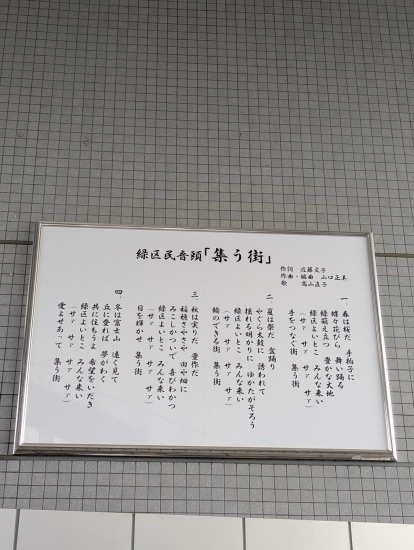 緑区民音頭「集う街」
作詞 近藤文子
作曲・編曲 山口正美
歌 高山直子
一、春は桜だ 手拍子に
蝶々花びら 舞い踊る
緑萌え立つ 豊かな大地
緑区よいとこ みんな来い
(サァ サァ サァ サァ)
手をつなぐ街 集う街
二、夏は祭だ 盆踊り
やぐら太鼓に 誘われて
揺れる明かりに ゆかたがそろう
緑区よいとこ みんな来い
(サァ サァ サァ サァ)
輪のできる街 集う街
三、秋は実りだ 豊作だ
稲穂さやさや 田や畑に
みこしかついで 喜びわかつ
緑区よいとこ みんな来い
(サァ サァ サァ サァ)
目を輝かせ 集う街
四、冬は富士山 遠く見て
丘に登れば 夢がわく
共に住もうよ 希望をいだき
緑区よいとこ みんな来い
(サァ サァ サァ サァ)
愛よせあって 集う街